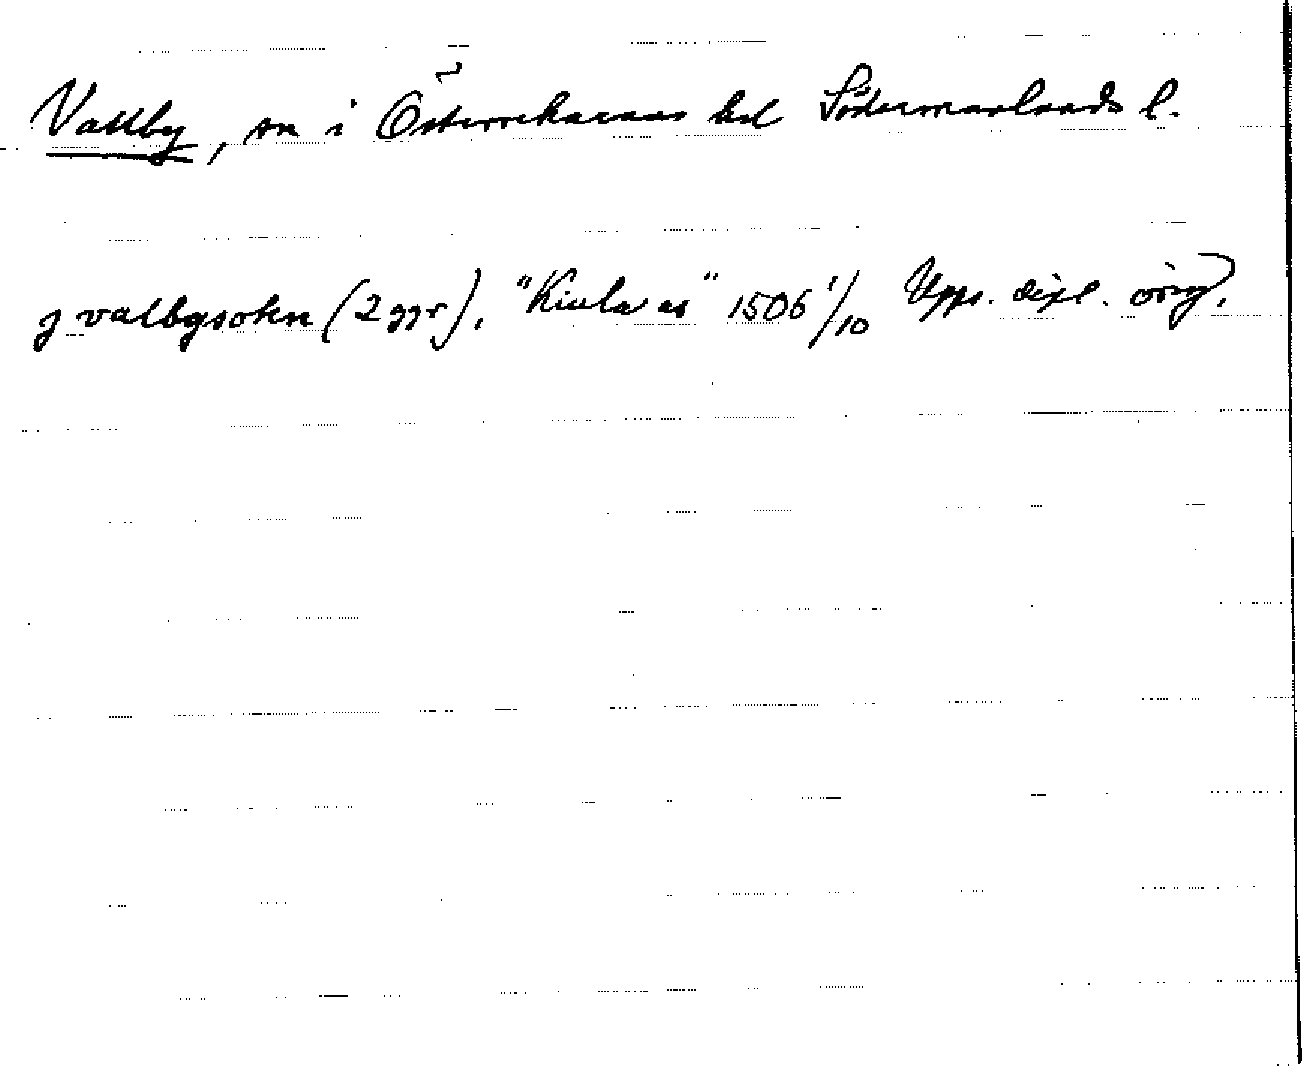 Vallby, sn i Österrekarnes hd Södermanlands l.
j valbysokn (2 ggr), "Kiula as" 1506 1/10 Upps. dipl. orig.